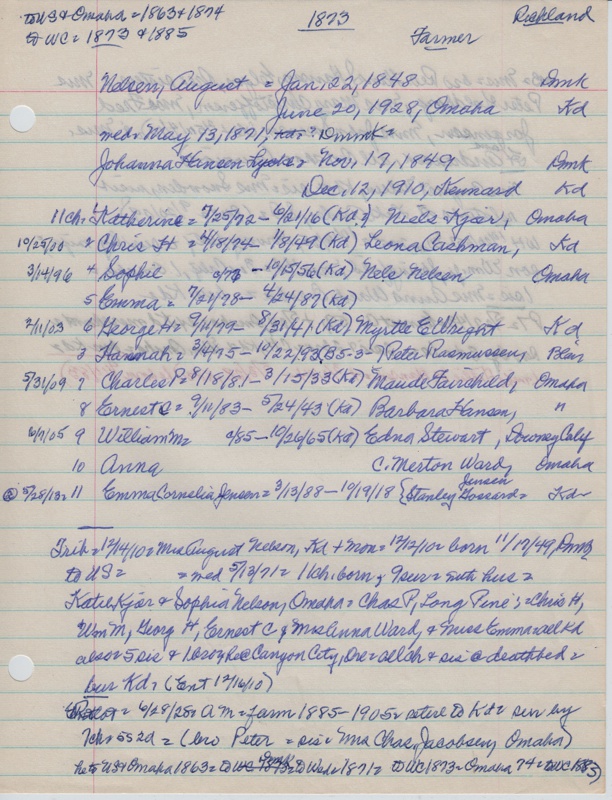 to US & Omaha = 1863 & 1874
to WC = 1873 & 1885
1873
Richland
Farmer
Nelsen, August = Jan, 22, 1848 Dmk
June 20, 1928, Omaha Kd
med = May 13, 1871, Dmmk =
Johanna Hansen = Nov, 17, 1849 Dmk
Dec, 12, 1910, Kennard Kd
11 ch = 1 Katherine = 7/25/72 - 6/21/16 (Kd?) Niels Kjar, Omaha
10/25/00 2 Chris H = 4/18/74 1/8/49 (Kd) Leona Cashman, Kd
3/14/96 4 Sophie c/76 - 10/15/56 (Kd) Nels Nelsen Omaha
5 Emma = 7/21/78 - 4/24/87 (Kd)
2/11/03 6 George H = 9/14/79 - 8/31/41 (Kd) Myrtle E Wrigort Kd
3 Hannah = 3/4/75 - 10/22/93 (B5-3-) Peter Rasmussen, Blair
5/31/09 7 Charles P = 8/18/81 - 3/15/33 (Kd) Maude Fairchild, Omaha
8 Ernest C = 9/11/83 - 5/24/43 (Kd) Barbara Hansen, "
6/7/05 9 William M = c/85 - 10/26/65 (Kd) Edna Stewart, Downey Calif
10 Anna C. Merton Ward, Omaha
@ 5/28/13 = 11 Emma Cornelia Jensen = 3/13/88 - 10/19/18 {Stanley Gossard = Kd
Jensen
Trib = 12/14/10 = Mrs August Nelson, Kd + Mon = 12/12/10 = born 11/17/49, Dmk
to US = = med 5/13/71 = 11 ch. born, 9 sur = with hus =
Kate Kjar & Sophia Nelson, Omaha = Chas P, Long Pine; = Chris H,
Wm M, Georg H, Ernest C & Mrs Anna Ward, & Miss Emma = all Kd
also = 5 sis & 1 bro, Canyon City, Ore = all ch & sis @ deathbed =
bur Kd = (Ent 12/16/10)
6/28/28 = A M = farm 1885 - 1905 = retired to Kd = sur by
7 ch = (bro Peter = sis = Mrs Chas, Jacobsen, Omaha)
he to US & Omaha 1863 = to 1871 = to WC 1873 = Omaha 74 = to WC 1885)